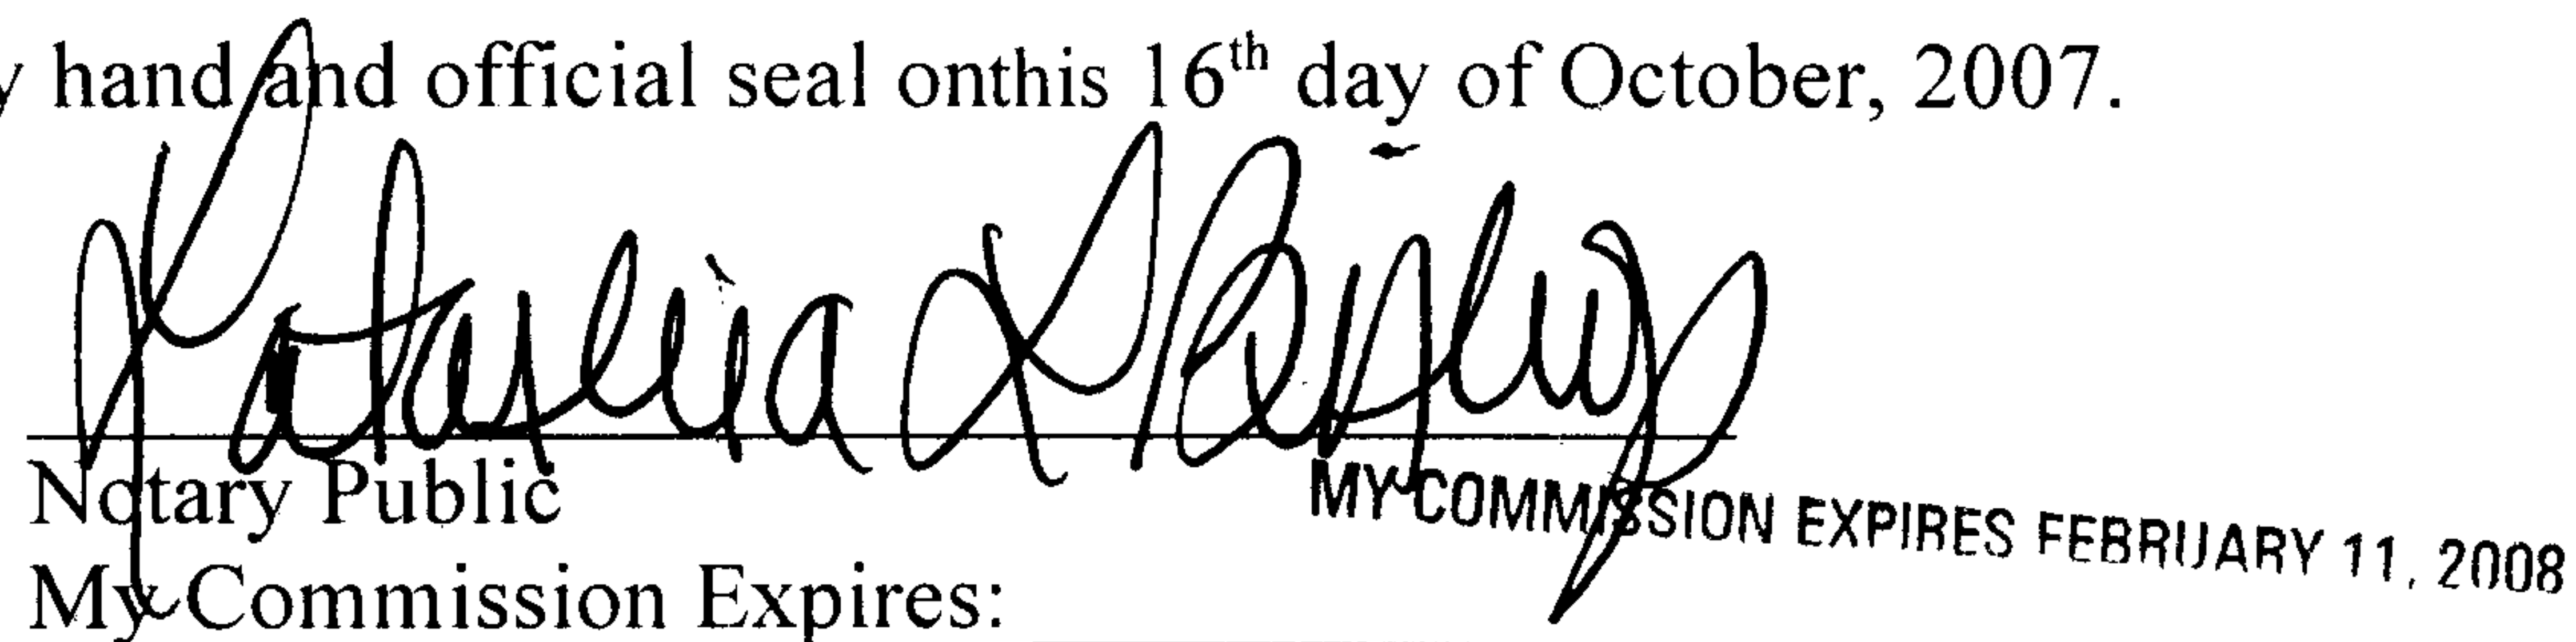 hand and official seal onthis 16th day of October, 2007.
Notary Public
MY COMMISSION EXPIRES FEBRUARY 11, 2008
My Commission Expires: